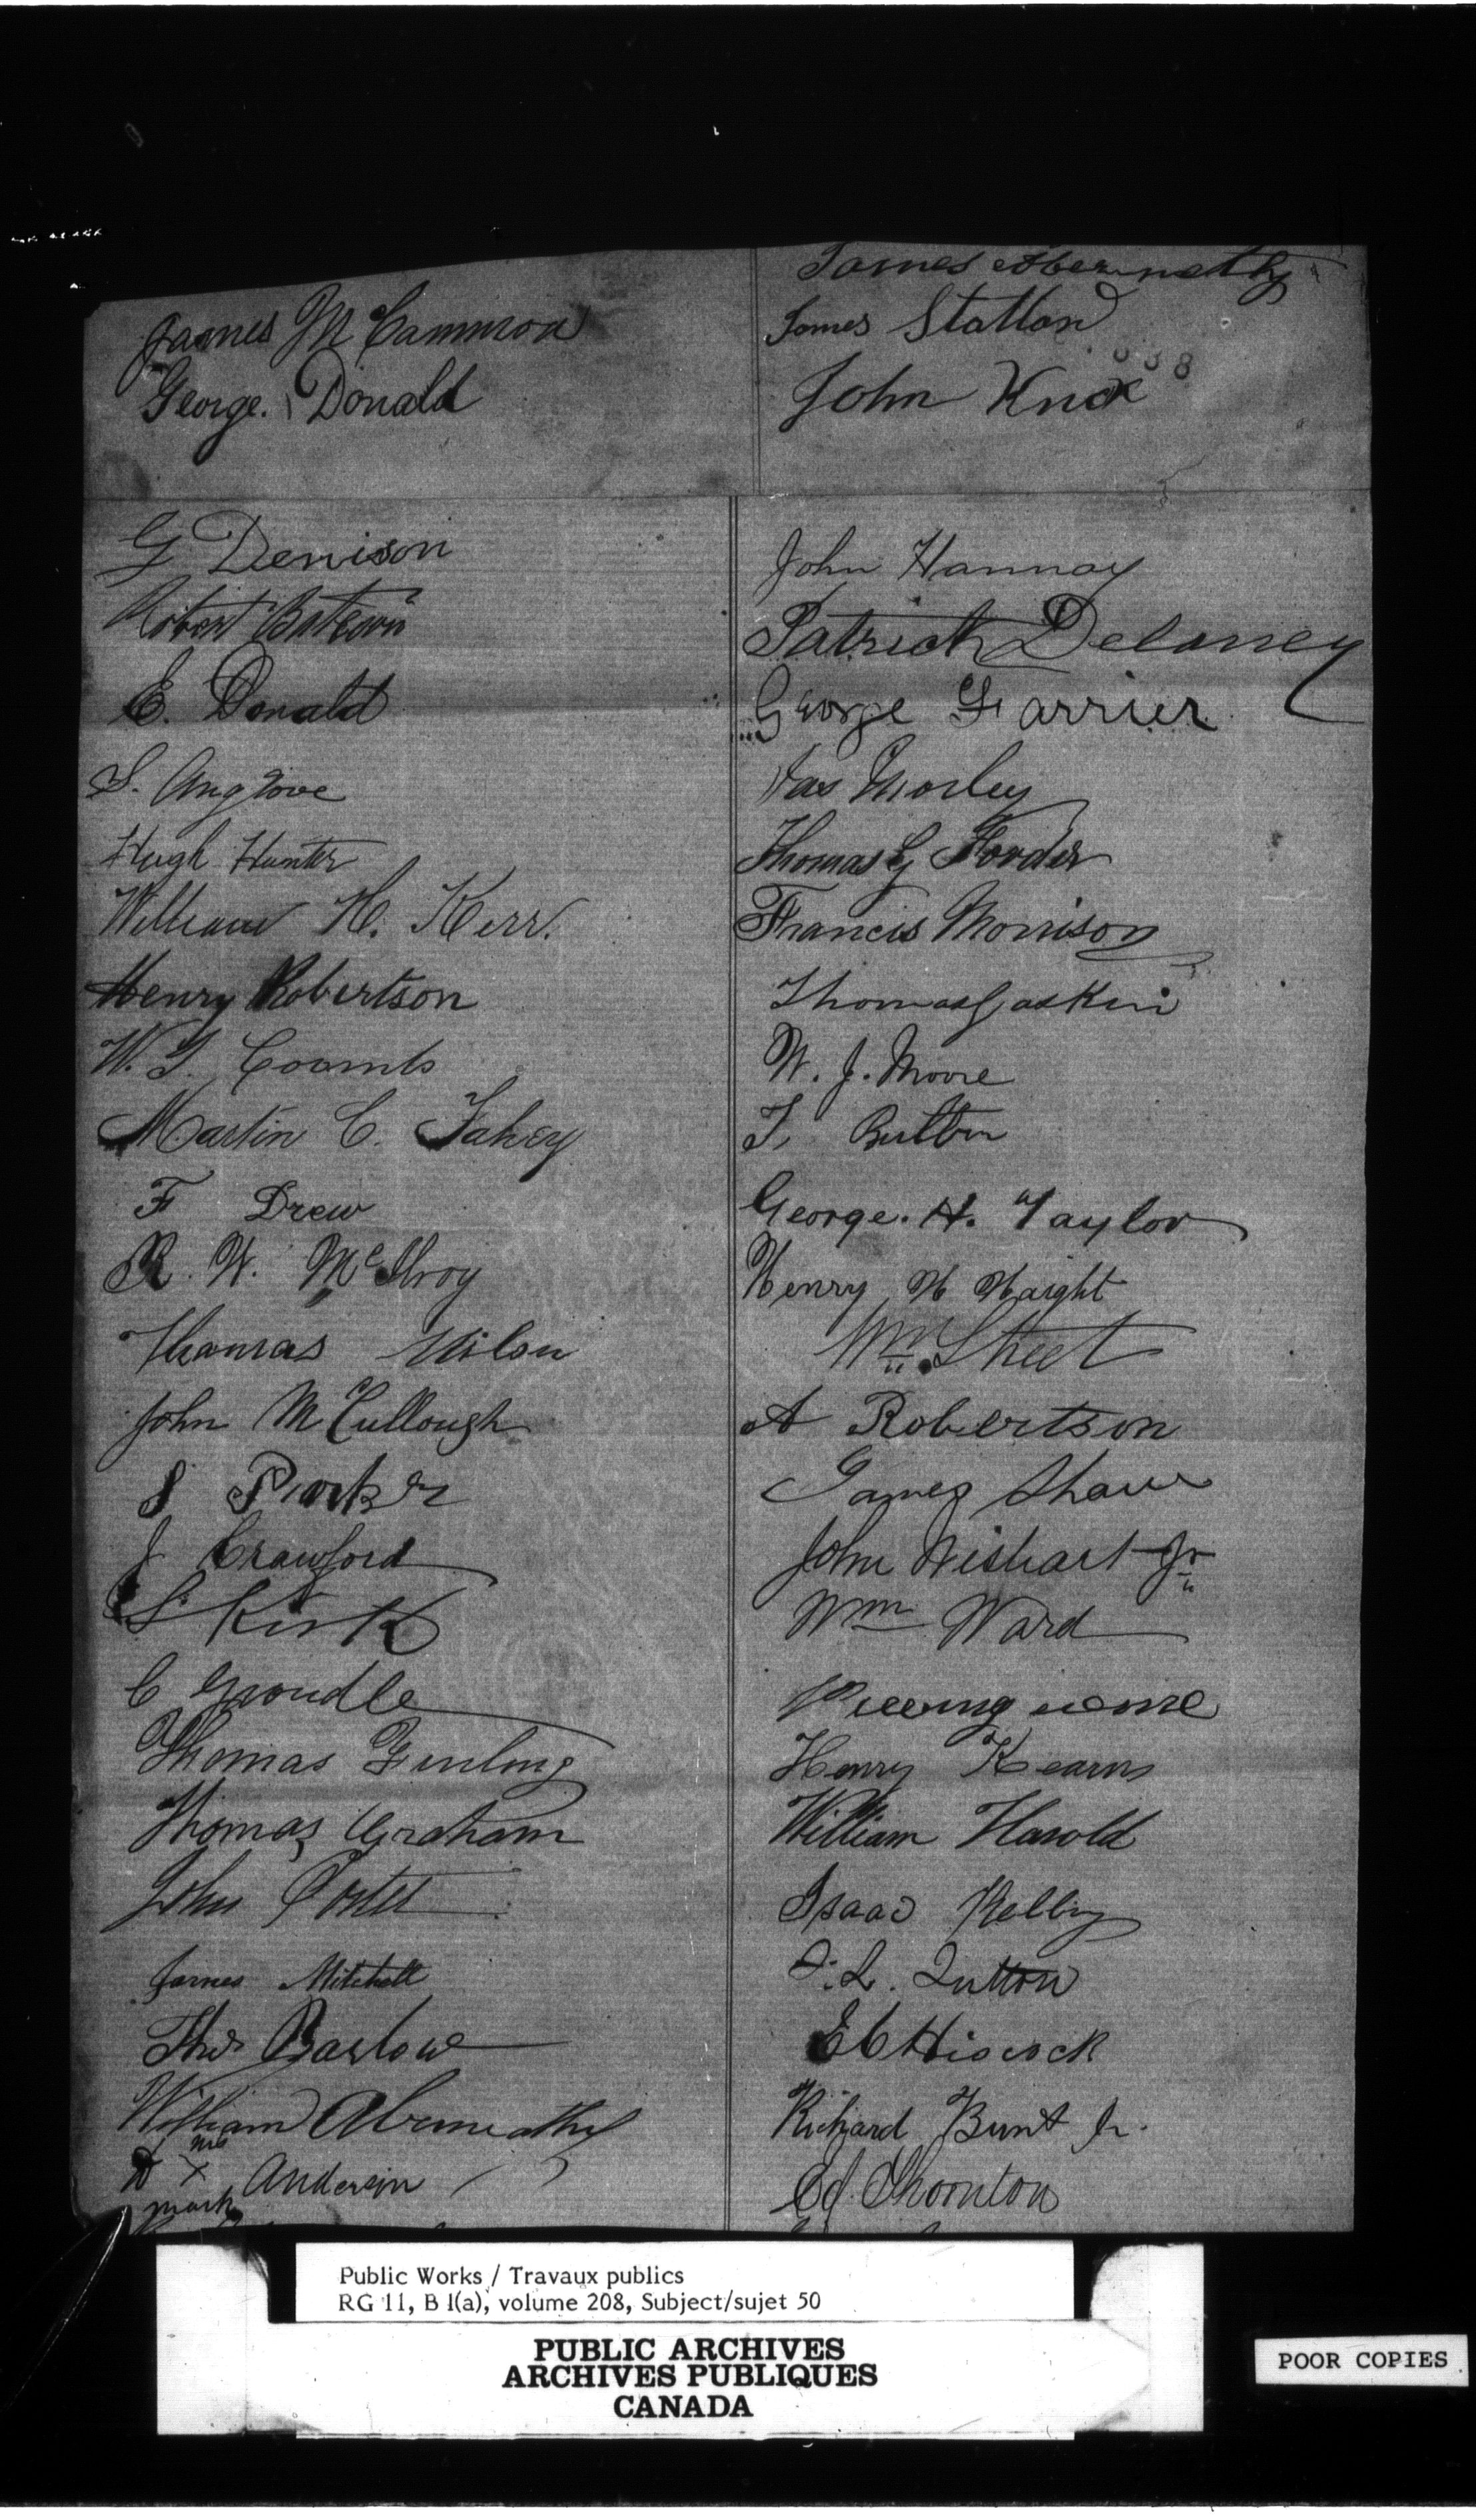 James McCammon
George. Donald
G Denison
Robert Bateson
E. Donald
S. Anglove
Hugh Hunter
William H. Kerr.
Henry Robertson
W. J. Coombs
Martin C. Fahey
F Drew
R. W. McIlroy
Thomas Milsn
John McCullough
S Parker
J Crawford
S Kirk
C Grondle
Thomas Furlong
Thomas Graham
John Porter
James Mitchell
Thos Barlow
William Abernathy
his
X Anderson
mark
James Abernethy
James Stallan
John Knox
838
John Hannay
Patrick Delaney
George Farrier
Jas Morley
Thomas G Forder
Francis Morrison
Thomas Gaskin
W. J. Moore
T. Button
George. H. Taylor
Henry W Waight
Wm Street
A Robertson
James Shaw
John Wishart Jr
Wm Ward
Henry Kearns
William Harold
Isaac
L. Sutton
E C Hiscock
Richard Bunt Jr.
Ed Thornton
Public Works / Travaux publics
RG 11, B 1(a), volume 208, Subject/sujet 50
PUBLIC ARCHIVES
ARCHIVES PUBLIQUES
CANADA
POOR COPIES